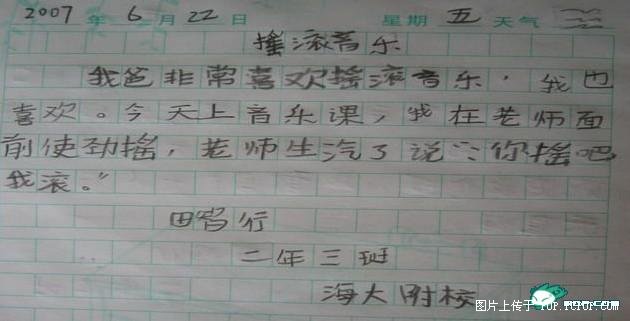 2007年6月22日 星期五 天气
摇滚音乐
我爸非常喜欢摇滚音乐，我也
喜欢。今天上音乐课，我在老师面
前使劲摇，老师生汽了说：“你摇吧
我滚。”
田智行
二年三班
海大附校
图片上传于 TOP.TCTOP.COM